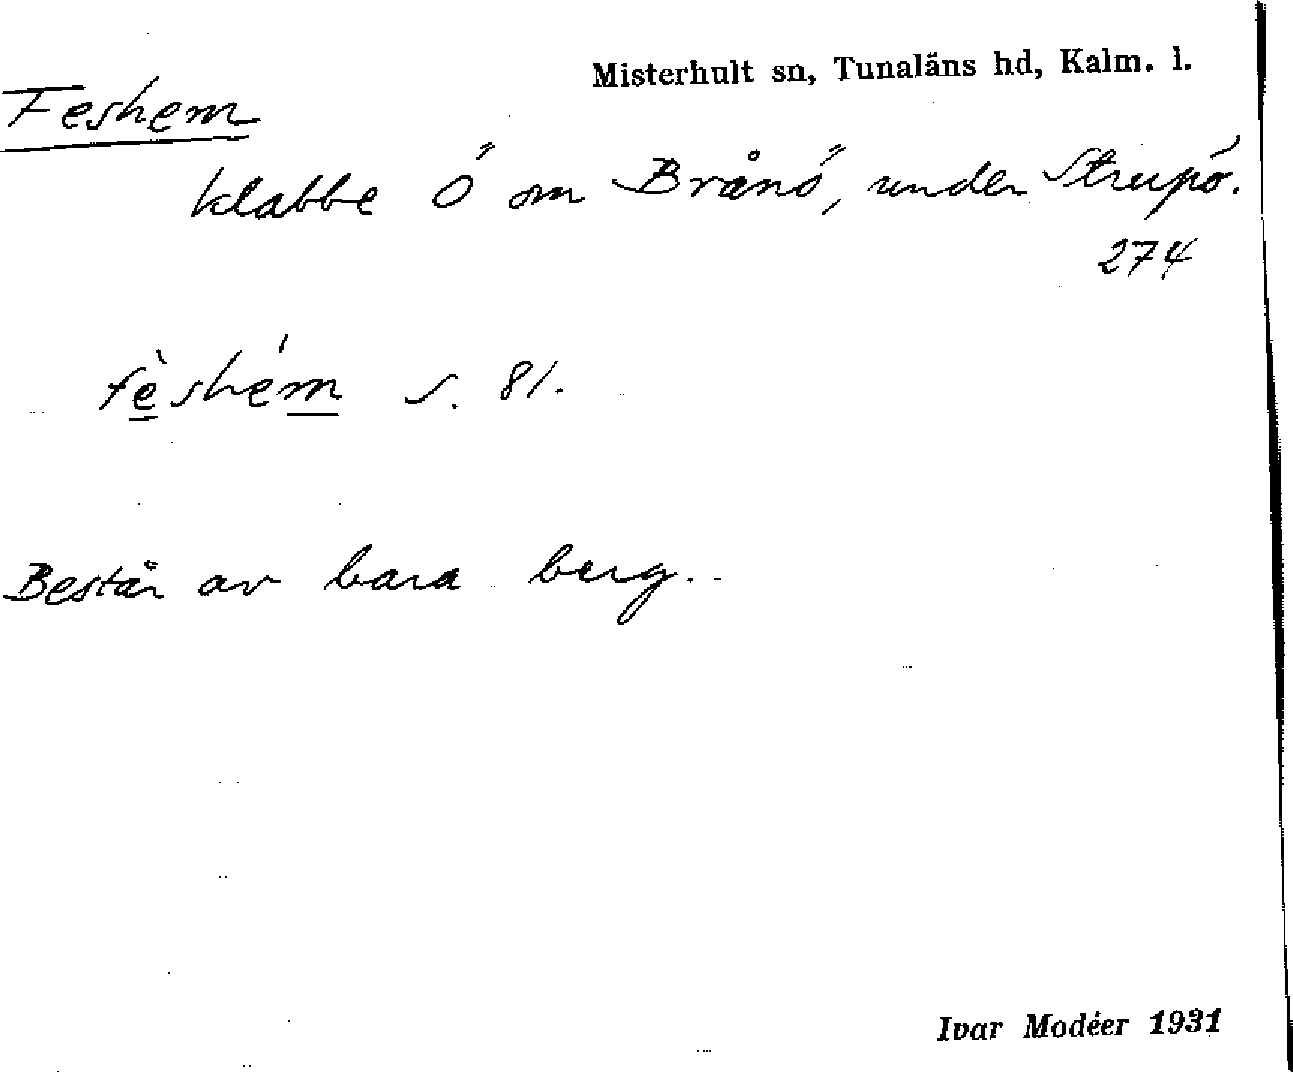 Misterhult sn, Tunaläns hd, Kalm. l.
Feshem
klabbe Ö om Brånö, under Strupö.
274
fèshém s. 81.
Består av bara berg.
Ivar Modéer 1931